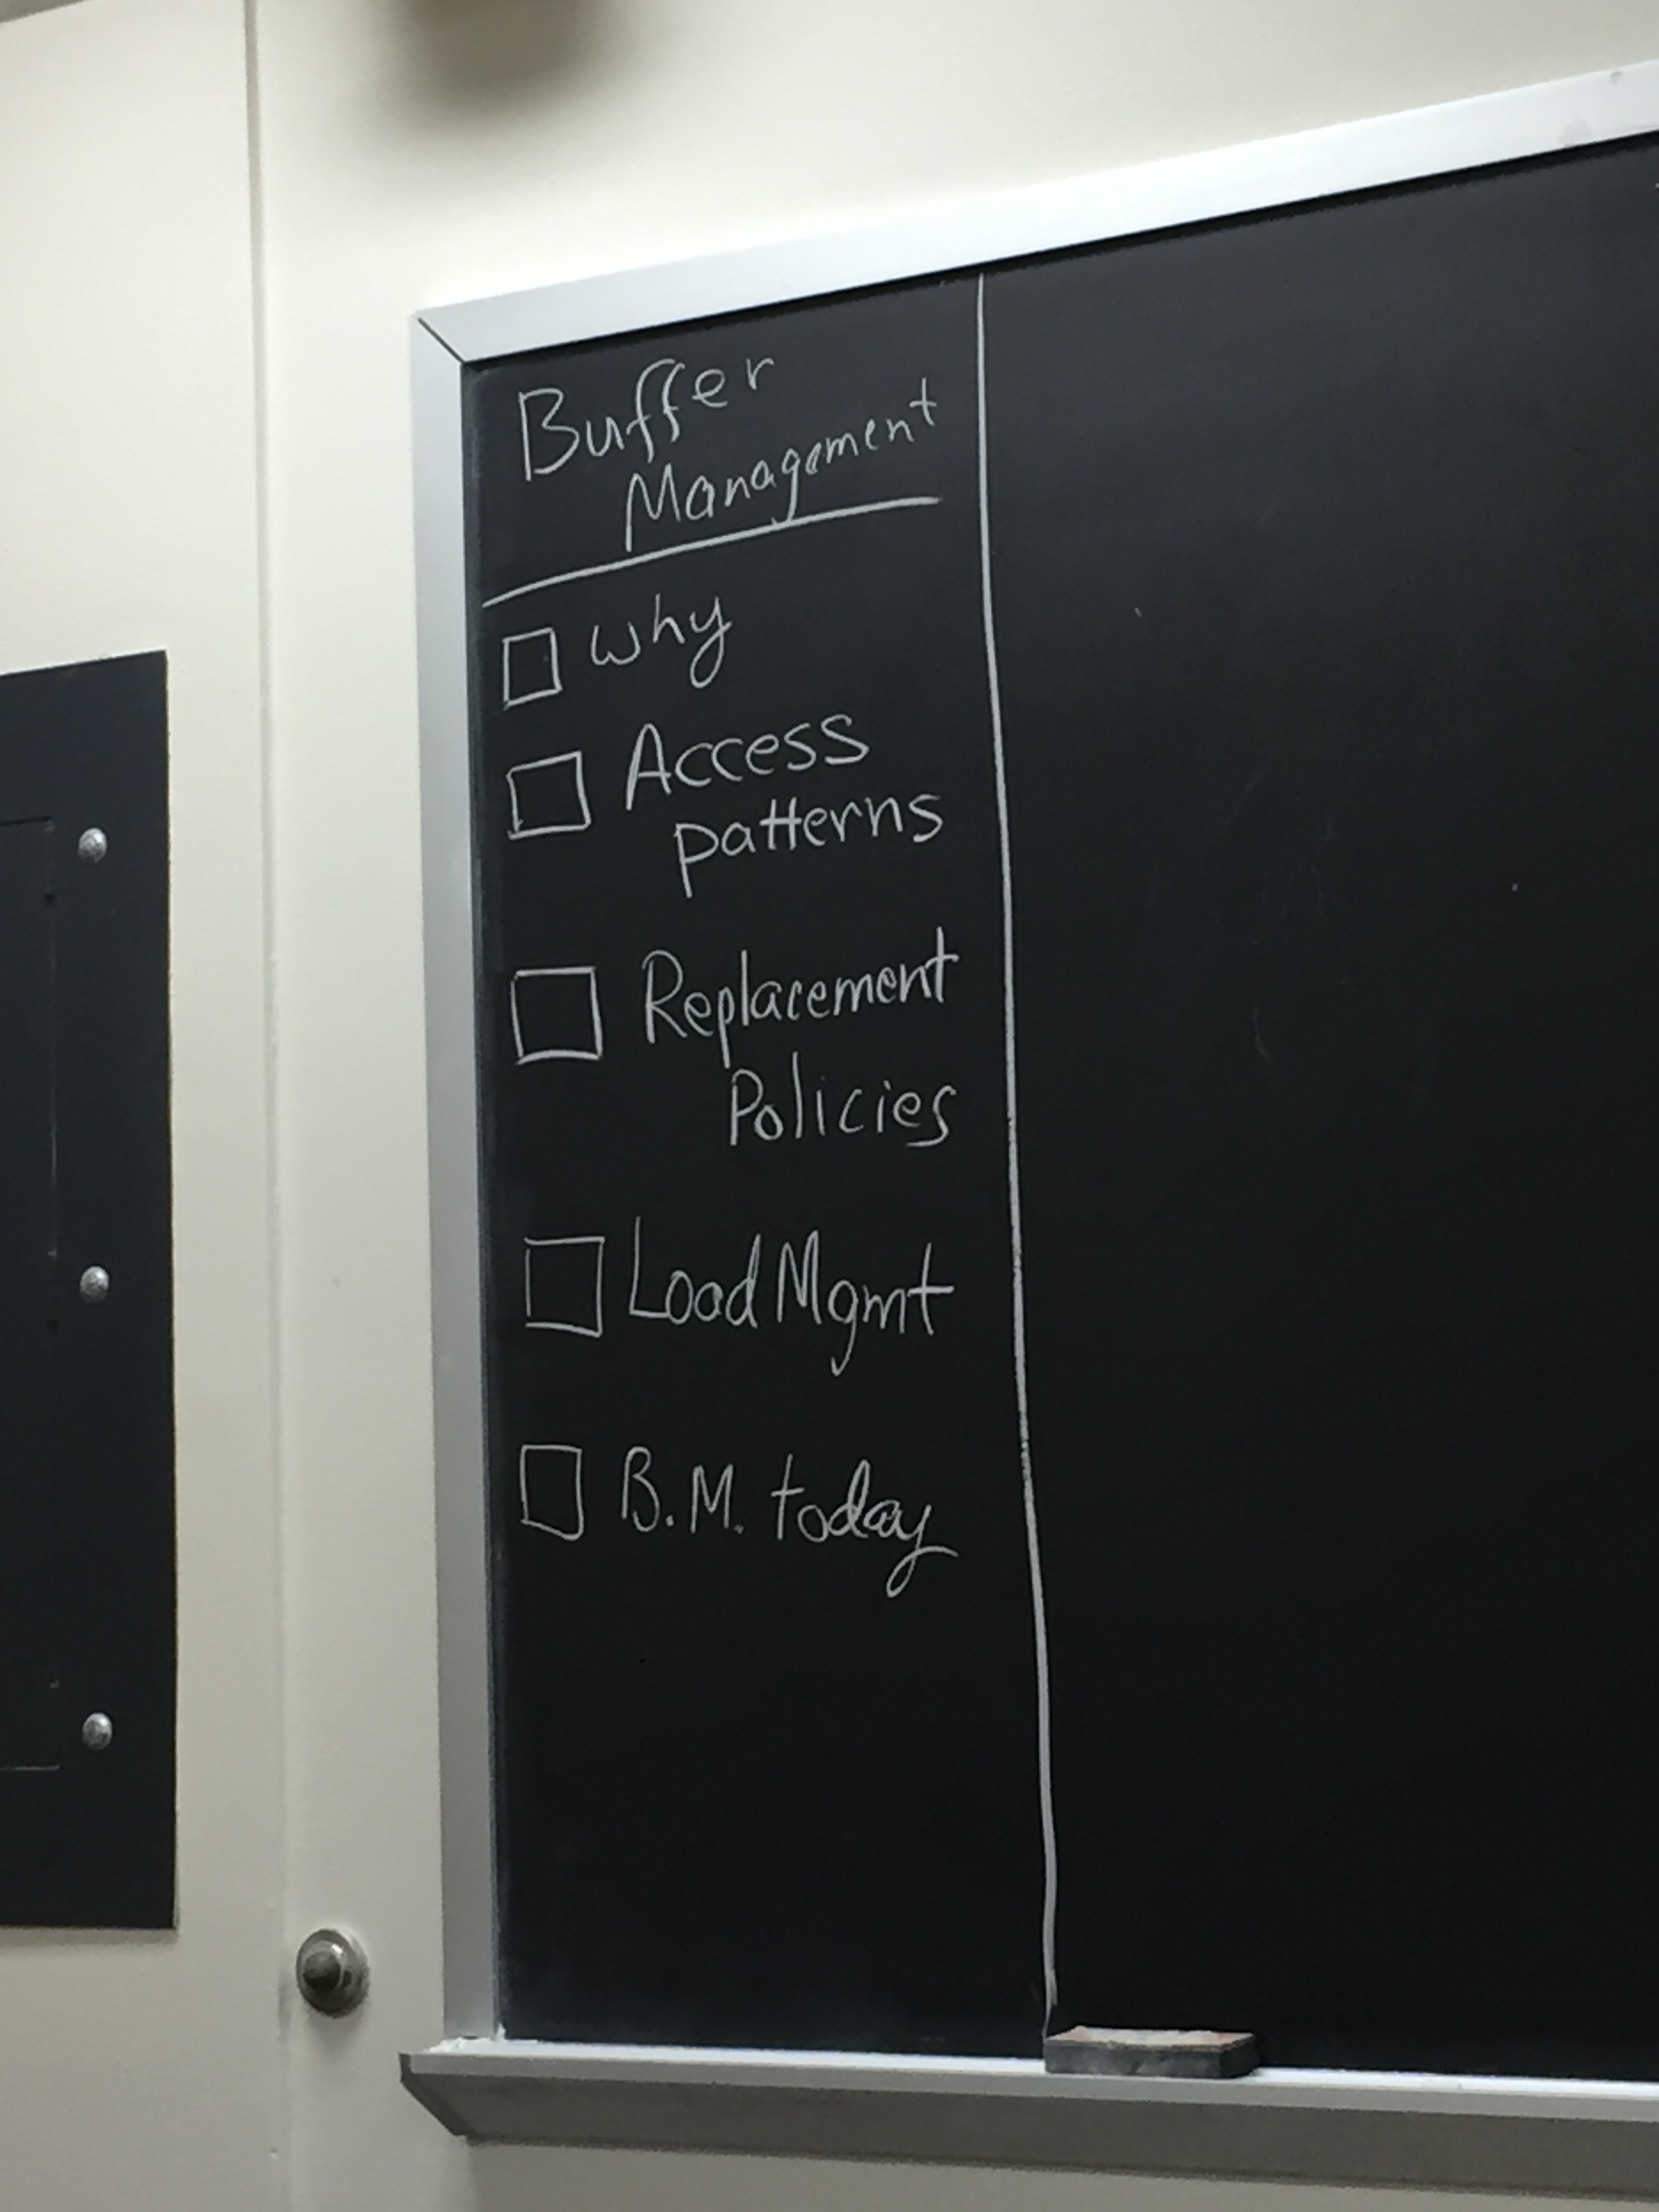 Buffer
Management
Why
Access
patterns
Replacement
Policies
Load Mgmt
B.M. today